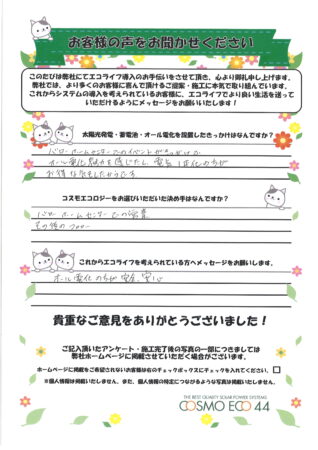 お客様の声をお聞かせください
このたびは弊社にてエコライフ導入のお手伝いをさせて頂き、心より御礼申し上げます。
弊社では、より多くのお客様に喜んで頂けるご提案・施工に本気で取り組んでいます。
これからシステムの導入を考えられているお客様に、エコライフでより良い生活を送って
いただけるようにメッセージをお願いいたします！
太陽光発電・蓄電池・オール電化を設置したきっかけはなんですか？
バローホームセンターでのイベントがきっかけで
オール電化に魅力を感じたし、電気一本化の方が
お得な気もしたからです
コスモエコロジーをお選びいただいた決め手はなんですか？
バローホームセンターでの営業
その後のフォロー
これからエコライフを考えられている方へメッセージをお願いします。
オール電化の方が安全、安心
貴重なご意見をありがとうございました！
ご記入頂いたアンケート・施工完了後の写真の一部につきましては
弊社ホームページに掲載させていただく場合がございます。
ホームページに掲載をご希望されないお客様は右のチェックボックスにチェックを入れてください。□
※個人情報は掲載いたしません、また、個人情報の特定につながるような写真は掲載いたしません。
THE BEST QUALITY SOLAR POWER SYSTEMS
COSMO ECO 44